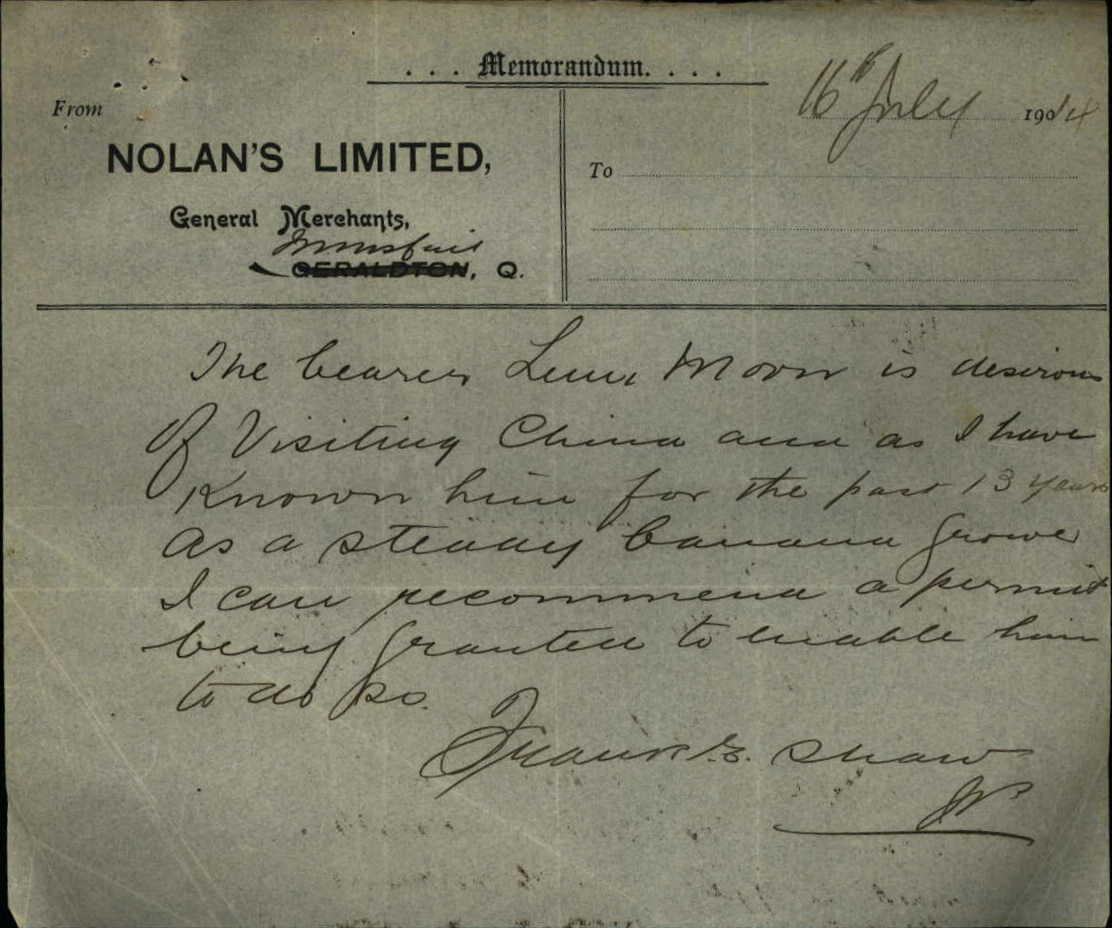 . . . Memorandum. . . .
16th July 1914
From
NOLAN'S LIMITED,
To
General Merchants,
Innisfail
GERALDTON, Q.
The bearer Moon is desirous
Of Visiting China and as I have
Known him for the past 13 years
As a steady banana grower
I can recommend a permit
being granted to enable him
to do so.
Frank E. Shaw
JP